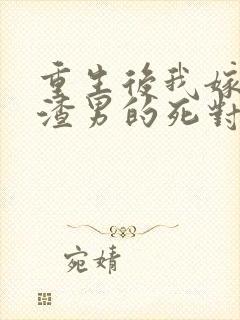 重生後我嫁
渣男的死對
宛婧